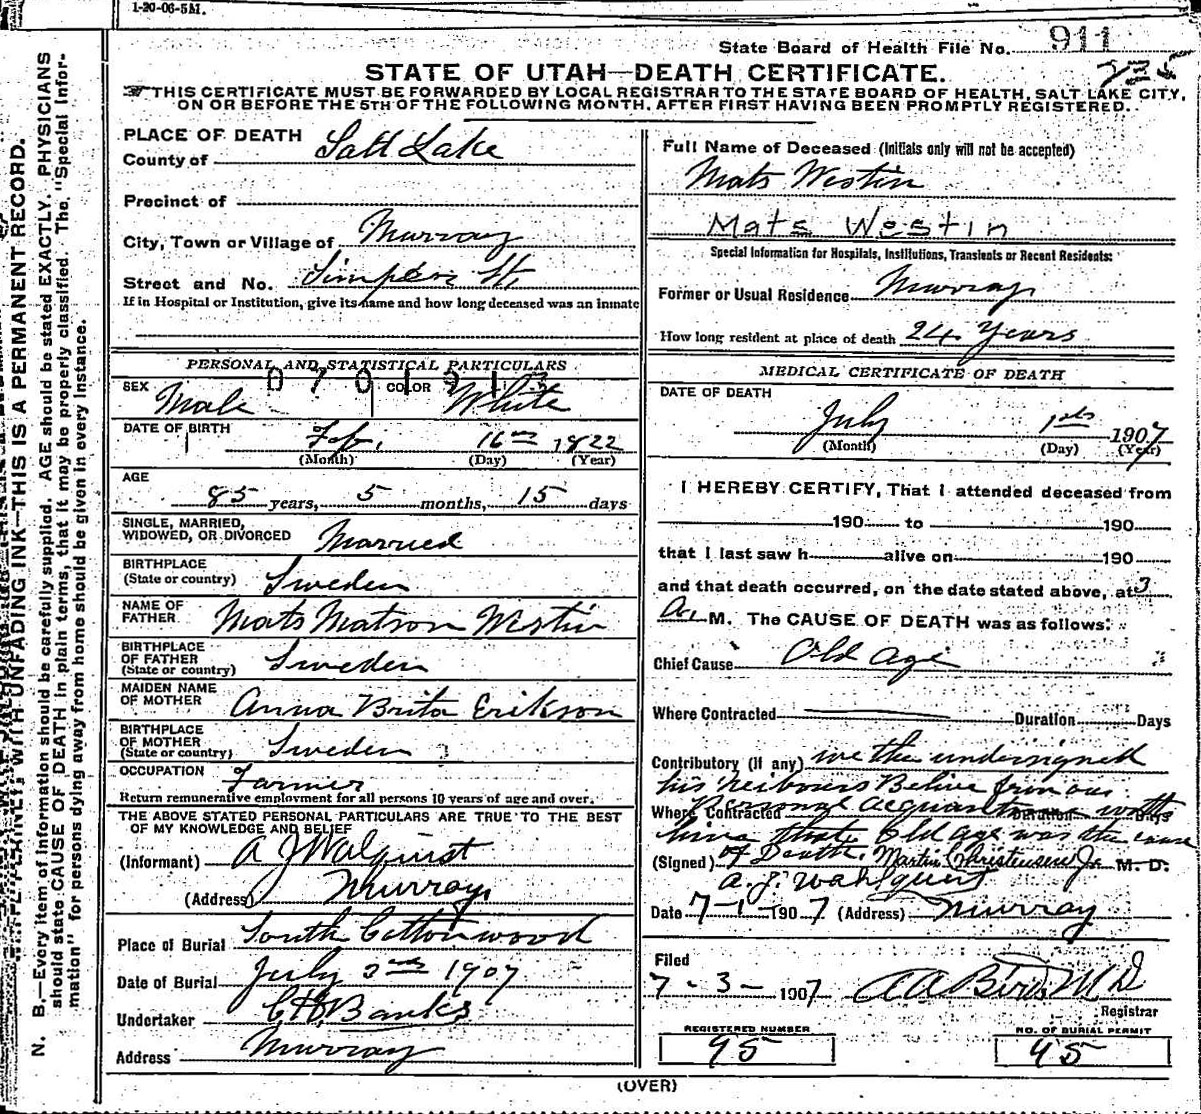 1-20-06-5M.
State Board of Health File No. 911
235
STATE OF UTAH—DEATH CERTIFICATE.
THIS CERTIFICATE MUST BE FORWARDED BY LOCAL REGISTRAR TO THE STATE BOARD OF HEALTH, SALT LAKE CITY,
ON OR BEFORE THE 5TH OF THE FOLLOWING MONTH, AFTER FIRST HAVING BEEN PROMPTLY REGISTERED.
N. B.—Every item of information should be carefully supplied. AGE should be stated EXACTLY. PHYSICIANS
should state CAUSE OF DEATH in plain terms, that it may be properly classified. The "Special Infor-
mation" for persons dying away from home should be given in every instance.
WITH UNFADING INK—THIS IS A PERMANENT RECORD.
PLACE OF DEATH
County of Salt Lake
Precinct of
City, Town or Village of Murray
Street and No. Simpson St.
If in Hospital or Institution, give its name and how long deceased was an inmate
PERSONAL AND STATISTICAL PARTICULARS
SEX Male COLOR White
DATE OF BIRTH Feb. 16th 1822
(Month) (Day) (Year)
AGE
85 years, 5 months, 15 days
SINGLE, MARRIED,
WIDOWED, OR DIVORCED Married
BIRTHPLACE
(State or country) Sweden
NAME OF
FATHER Mats Matson Westin
BIRTHPLACE
OF FATHER
(State or country) Sweden
MAIDEN NAME
OF MOTHER Anna Brita Erikson
BIRTHPLACE
OF MOTHER
(State or country) Sweden
OCCUPATION Farmer
Return remunerative employment for all persons 10 years of age and over.
THE ABOVE STATED PERSONAL PARTICULARS ARE TRUE TO THE BEST
OF MY KNOWLEDGE AND BELIEF
(Informant) A J Walquist
(Address) Murray
Place of Burial South Cottonwood
Date of Burial July 3rd 1907
Undertaker Banks
Address Murray
Full Name of Deceased (Initials only will not be accepted)
Mats Westin
Mats Westin
Special Information for Hospitals, Institutions, Transients or Recent Residents:
Former or Usual Residence Murray
How long resident at place of death 24 Years
MEDICAL CERTIFICATE OF DEATH
DATE OF DEATH
July 1st 1907
(Month) (Day) (Year)
I HEREBY CERTIFY, That I attended deceased from
190 to 190
that I last saw h alive on 190
and that death occurred, on the date stated above, at 3
A. M. The CAUSE OF DEATH was as follows:
Chief Cause Old Age
Where Contracted Duration Days
Contributory (if any) we the undersigned
his neibours Belive from our
Where Contracted Personal Acquantance with Duration Days
him that Old age was the cause
(Signed) of Death. Martin Christensen Jr. M. D.
A. J. Wahlquist
Date 7-1-1907 (Address) Murray
Filed
7-3-1907 A A Bird M D
Registrar
REGISTERED NUMBER
95
NO. OF BURIAL PERMIT
95
(OVER)